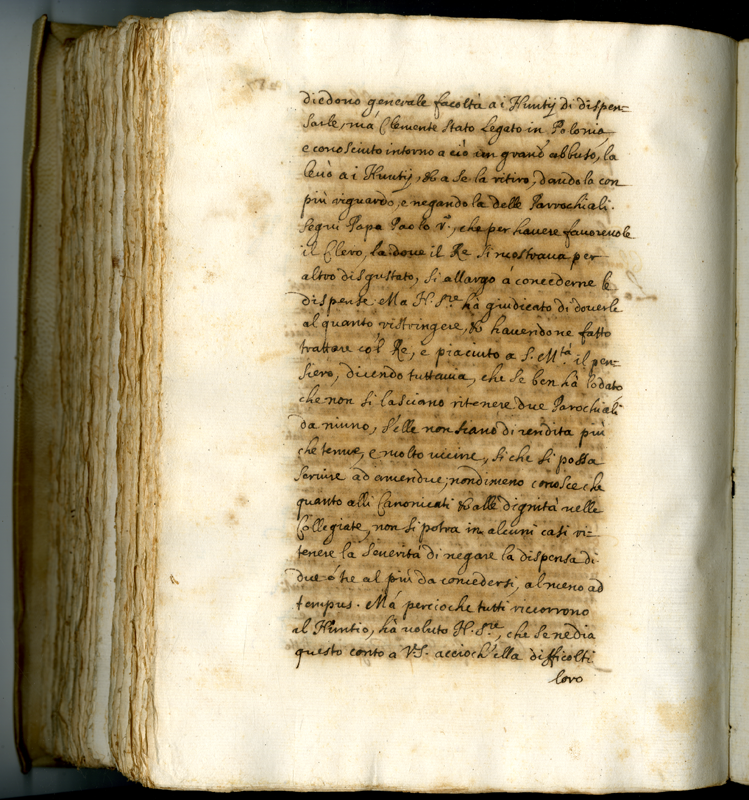 diedono generale facoltà a i Nuntij di dispen-
sarle, mà Clemente stato Legato in Polonia,
e conosciuto intorno a ciò un grand' abbuso, la
levò a i Nuntij, & a se la ritirò, dandola con
più riguardo, e negandola delle Parrochiali.
Seguì Papa Paolo V.º, che per havere favorevole
il Clero, la dove il Re si mostrava per
altro disgustato, si allargò à concederne le
dispense. Ma N. S.re hà giudicato di doverle
al quanto ristringere, & havendone fatto
trattare co'l Re, e piaciuto a S. M.tà il pen-
siero, dicendo tuttavia, che se ben hà lodato
che non si lasciano ritenere due Parochiali
da niuno, s'elle non siano di rendita più
che tenue, e molto vicine, si che si possa
servire ad amendue; nondimeno conosce che
quanto alli Canonicati & alle dignità nelle
Collegiate, non si potrà in alcuni casi ri-
tenere la severità di negare la dispensa di
due ò tre al più da concedersi, almeno ad
tempus. Mà percioche tutti ricorrono
al Nuntio, hà voluto N. S.re, che se ne dia
questo conto a V.S. accioch'ella difficolti
loro